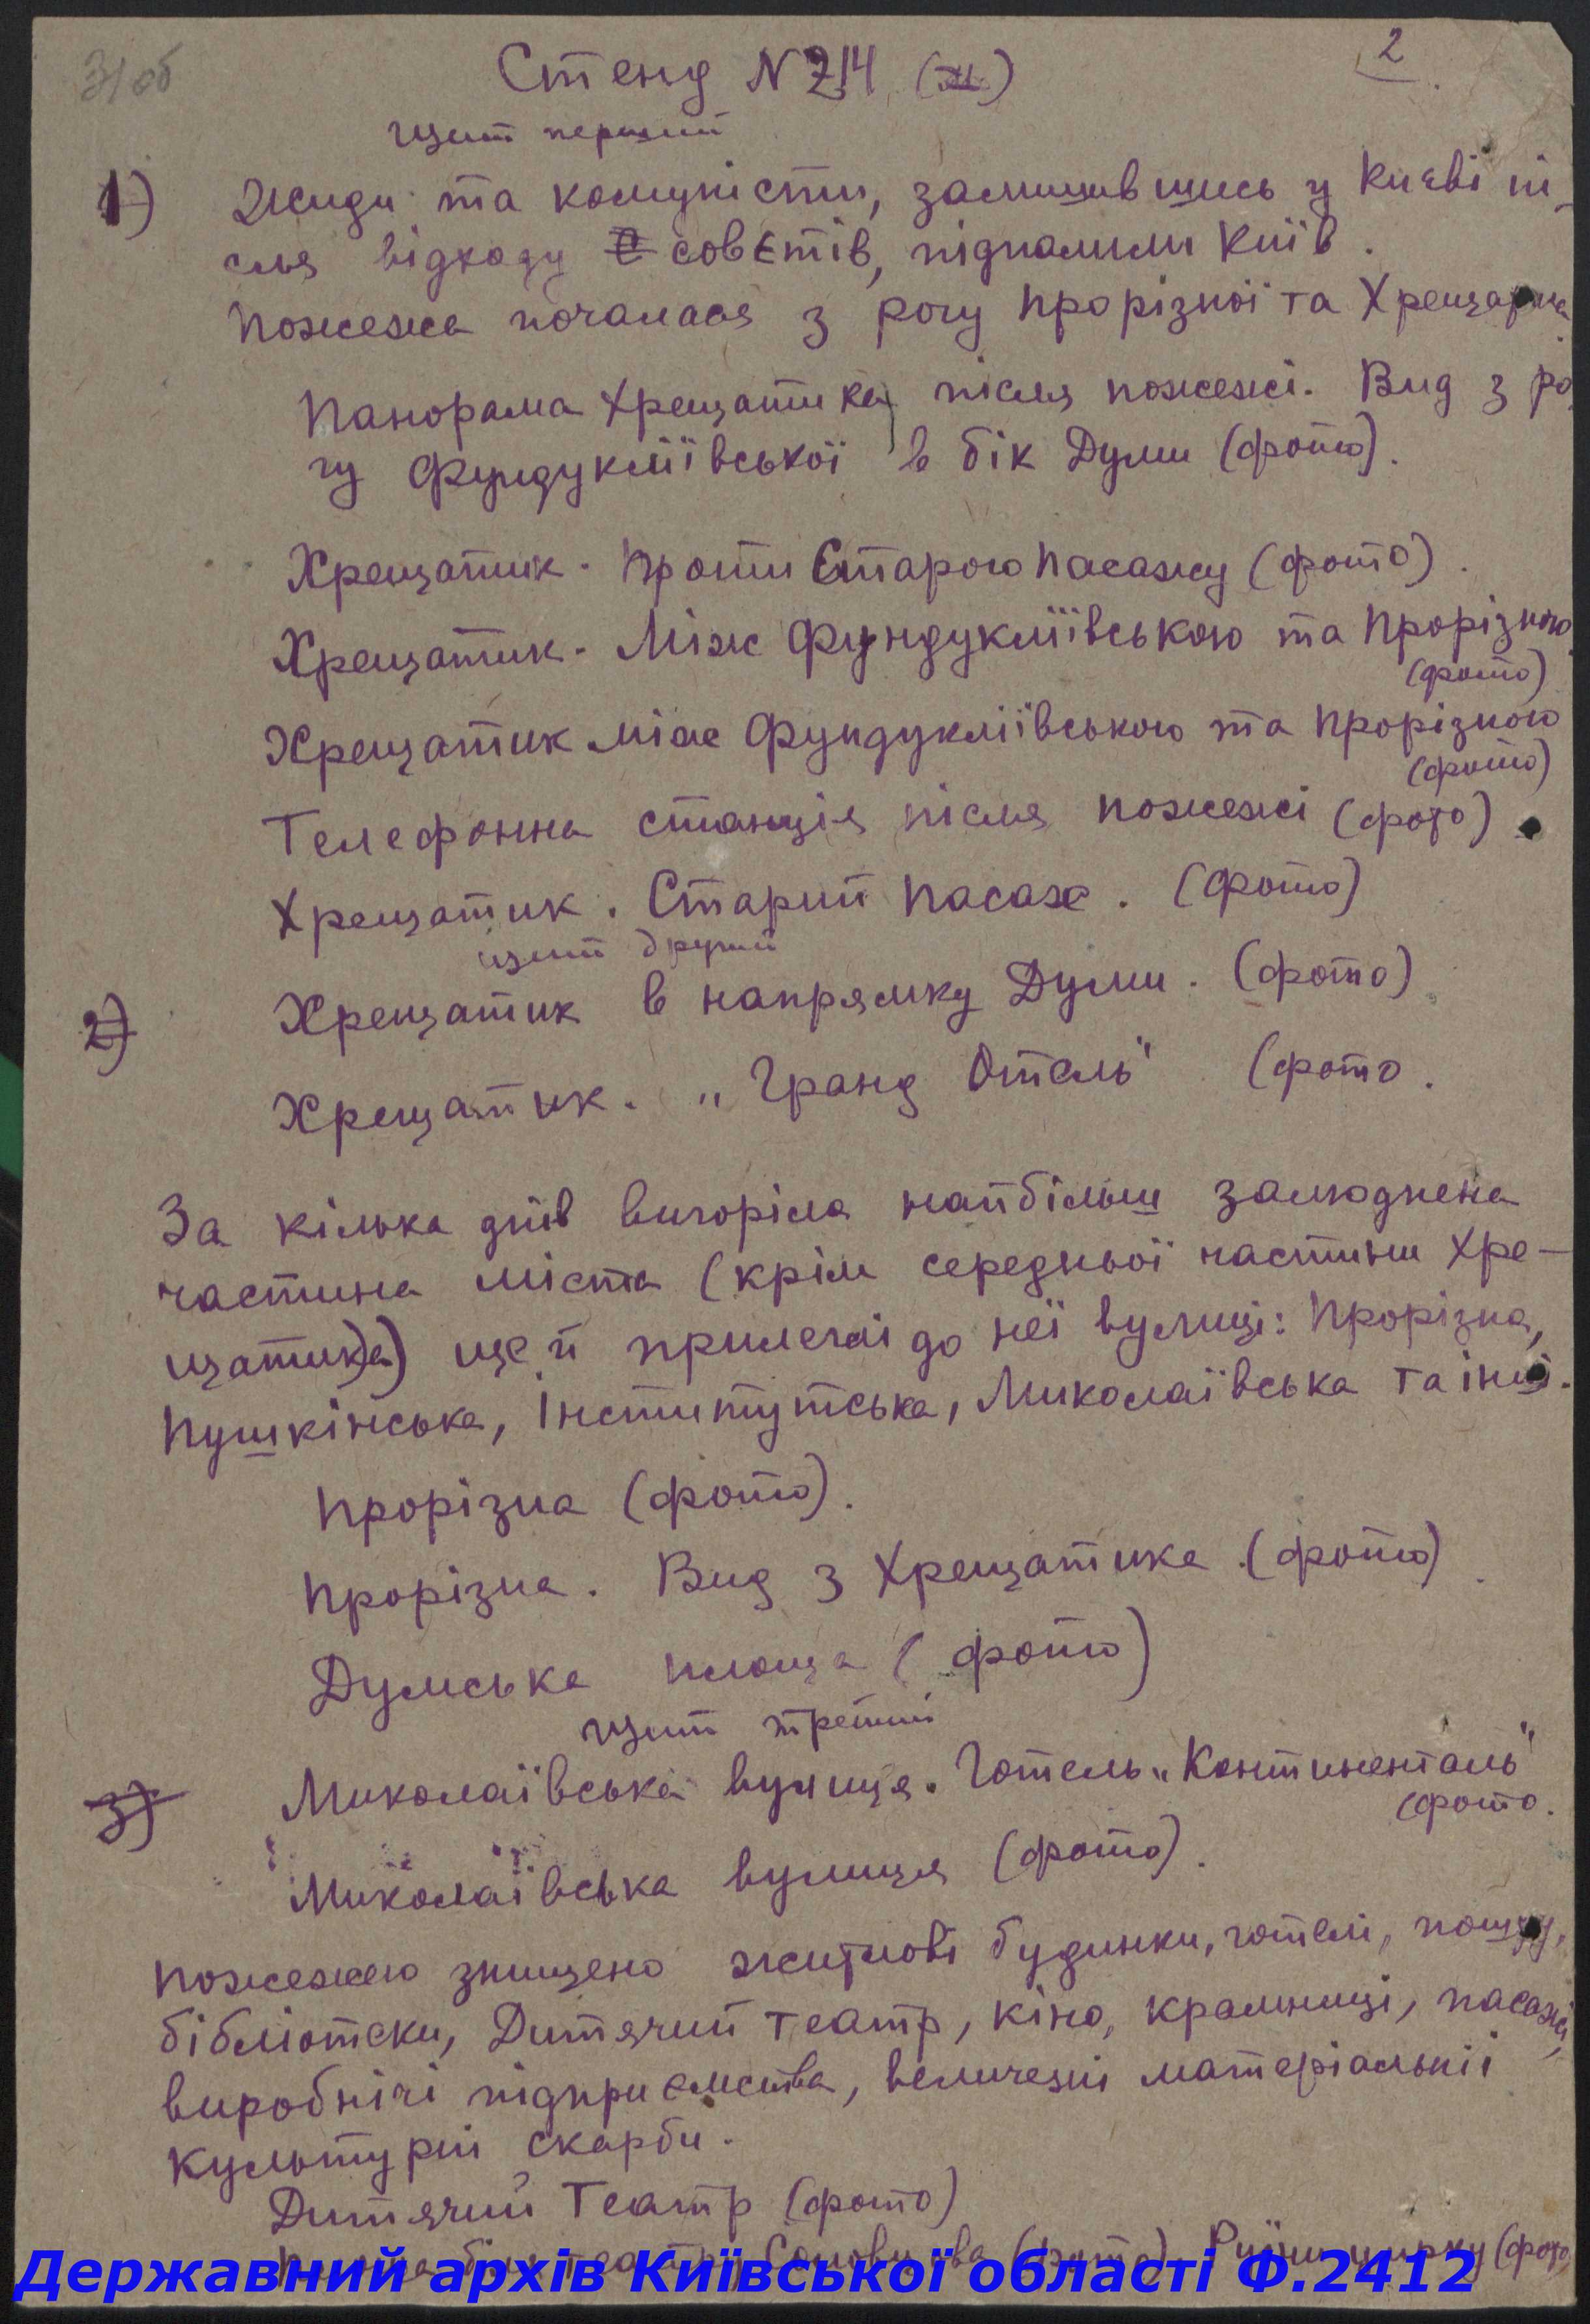 31об
2
Стенд N 214 (XI)
Щит перший
1) Жиди та комуністи, залишившись у Києві пі-
сля відходу совєтів, підпалили Київ.
Пожежа почалася з рогу Прорізної та Хрещатика.
Панорама Хрещатика після пожежі. Вид з ро
гу Фундукліївської в бік Думи (фото).
Хрещатик. Проти Старого Пасажу (фото).
Хрещатик. Між Фундукліївською та Прорізною
(фото)
Хрещатик між Фундукліївською та Прорізною
(фото)
Телефонна станція після пожежі (фото).
Хрещатик. Старий Пасаж. (фото)
щит другий
2) Хрещатик в напрямку Думи. (фото)
Хрещатик. „Гранд Отель" (фото.
За кілька днів вигоріла найбільш залюднена
частина міста (крім середньої частини Хре-
щатика) ще й прилеглі до неї вулиці: Прорізна,
Пушкінська, Інститутська, Миколаївська та інші.
Прорізна (фото).
Прорізна. Вид з Хрещатика (фото).
Думська площа (фото)
щит третій
3) Миколаївська вулиця. Готель „Континенталь"
(фото.
Миколаївська вулиця (фото).
Пожежею знищено житлові будинки, готелі, пошту,
бібліотеки, Дитячий театр, кіно, крамниці, пасажі,
виробничі підприємства, величезні матеріальні і
культурні скарби.
Дитячий Театр (фото)
Площа біля театру Соловцова (фото). Руїни цирку (фото
Державний архів Київської області Ф.2412